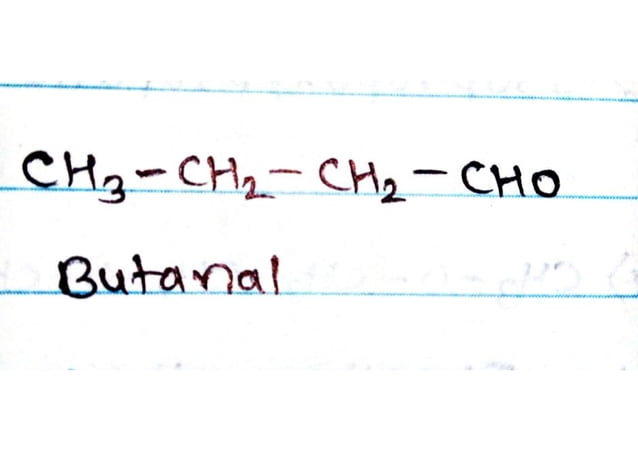 CH₃-CH₂-CH₂-CHO
Butanal